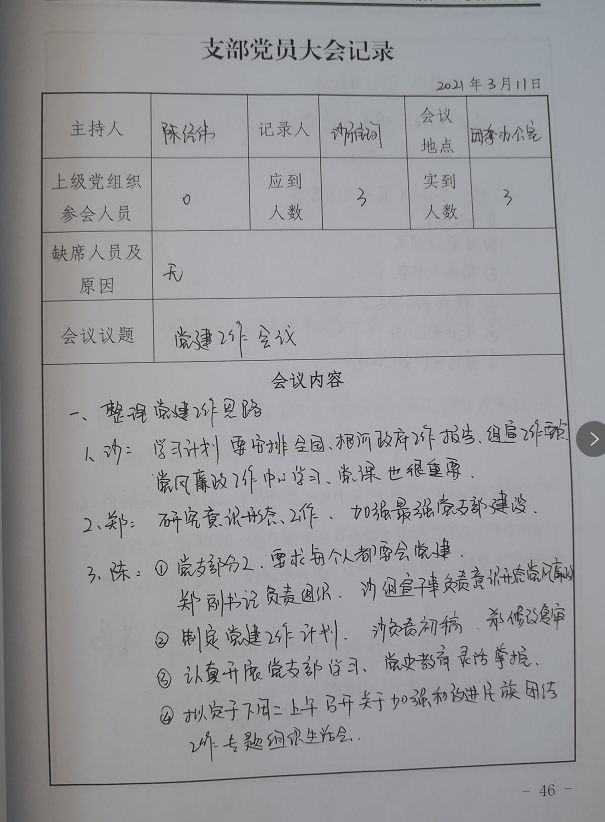 支部党员大会记录
2021年3月11日
主持人 陈 伟 记录人 沙 会议地点 四季办公室
上级党组织参会人员 0 应到人数 3 实到人数 3
缺席人员及原因 无
会议议题 党建工作会议
会议内容
一、整理党建工作思路
1、沙：学习计划要安排全国、根河政府工作报告、组宣工作要点
党风廉政工作中心学习、党课也很重要。
2、郑：研究意识形态工作、加强最强党支部建设。
3、陈：①党支部分工，要求每个人都要会党建，
郑副书记负责组织、沙组宣干事负责意识形态党风廉政
②制定党建工作计划，沙负责初稿，郑修改复审
③认真开展党支部学习、党史教育灵活掌握。
④拟定于下周二上午召开关于加强和改进民族团结
工作专题组织生活会。
- 46 -